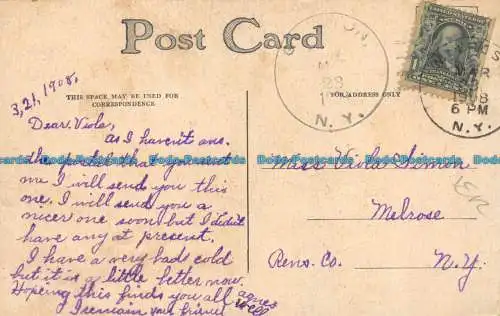 Post Card
THIS SPACE MAY BE USED FOR
CORRESPONDENCE.
FOR ADDRESS ONLY
3,21,1908.
Dear Viola,
as I haven't ans.
the that you sent
me I will send you this
one. I will send you a
nicer one soon but I didn't
have any at present.
I have a very bads cold
but it is a little better now.
Hoping this finds you all well
I remain your friend
agnes
Miss Viola Simon
Melrose
Rens. Co. N.Y.
N.Y.
MAR
1908
6 PM
N.Y.
Bobs-Postcards